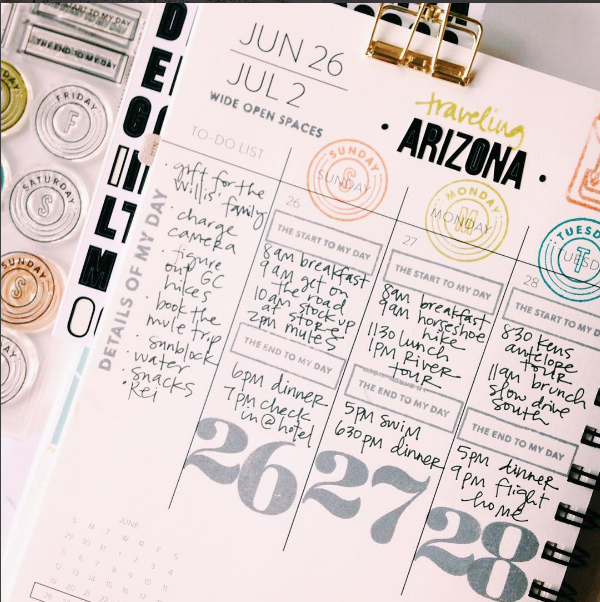 THE START TO MY DAY
THE END TO MY DAY
FRIDAY
F
SATURDAY
S
SUNDAY
S
JUN 26
JUL 2
WIDE OPEN SPACES
traveling
• ARIZONA •
TO-DO LIST
DETAILS OF MY DAY
• gift for the
Willis' family
• charge
camera
• figure
out GC
hikes
• book the
mule trip
• sunblock
• water
• snacks
• REI
SUNDAY
S
SUNDAY
26
THE START TO MY DAY
8am breakfast
9am get on
the road
10am stock up
at store
2pm mules
THE END TO MY DAY
6pm dinner
7pm check
in @ hotel
26
MONDAY
M
MONDAY
27
THE START TO MY DAY
8am breakfast
9am horseshoe
hike
1130 lunch
1pm River
tour
THE END TO MY DAY
5pm swim
630pm dinner
27
TUESD
T
TUESD
28
THE START TO MY D
830 Kens
antelope
tour
11am brunch
slow drive
south
THE END TO MY DAY
5pm dinner
9pm flight
home
28
JUNE
S M T W T F S